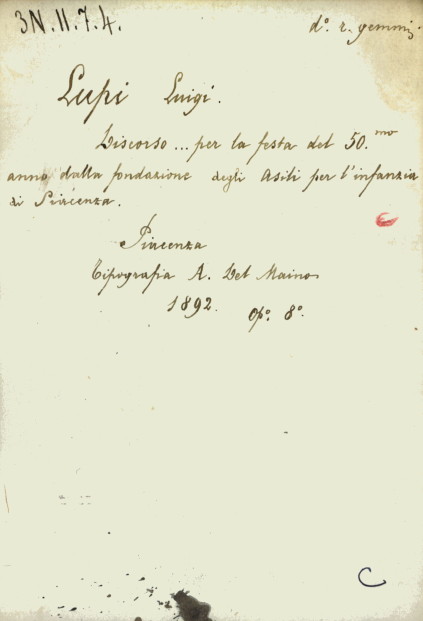 3N.II.7.4.
d°. r. gemmi
Lupi Luigi.
Discorso ... per la festa del 50.mo
anno dalla fondazione degli Asili per l'infanzia
di Piacenza.
Piacenza
Tipografia A. Del Maino
1892. Op°. 8°.
C